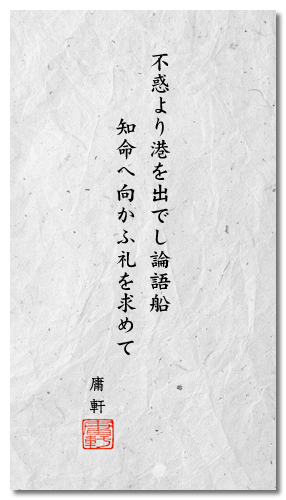 不惑より港を出でし論語船
知命へ向かふ礼を求めて
庸軒
庸軒